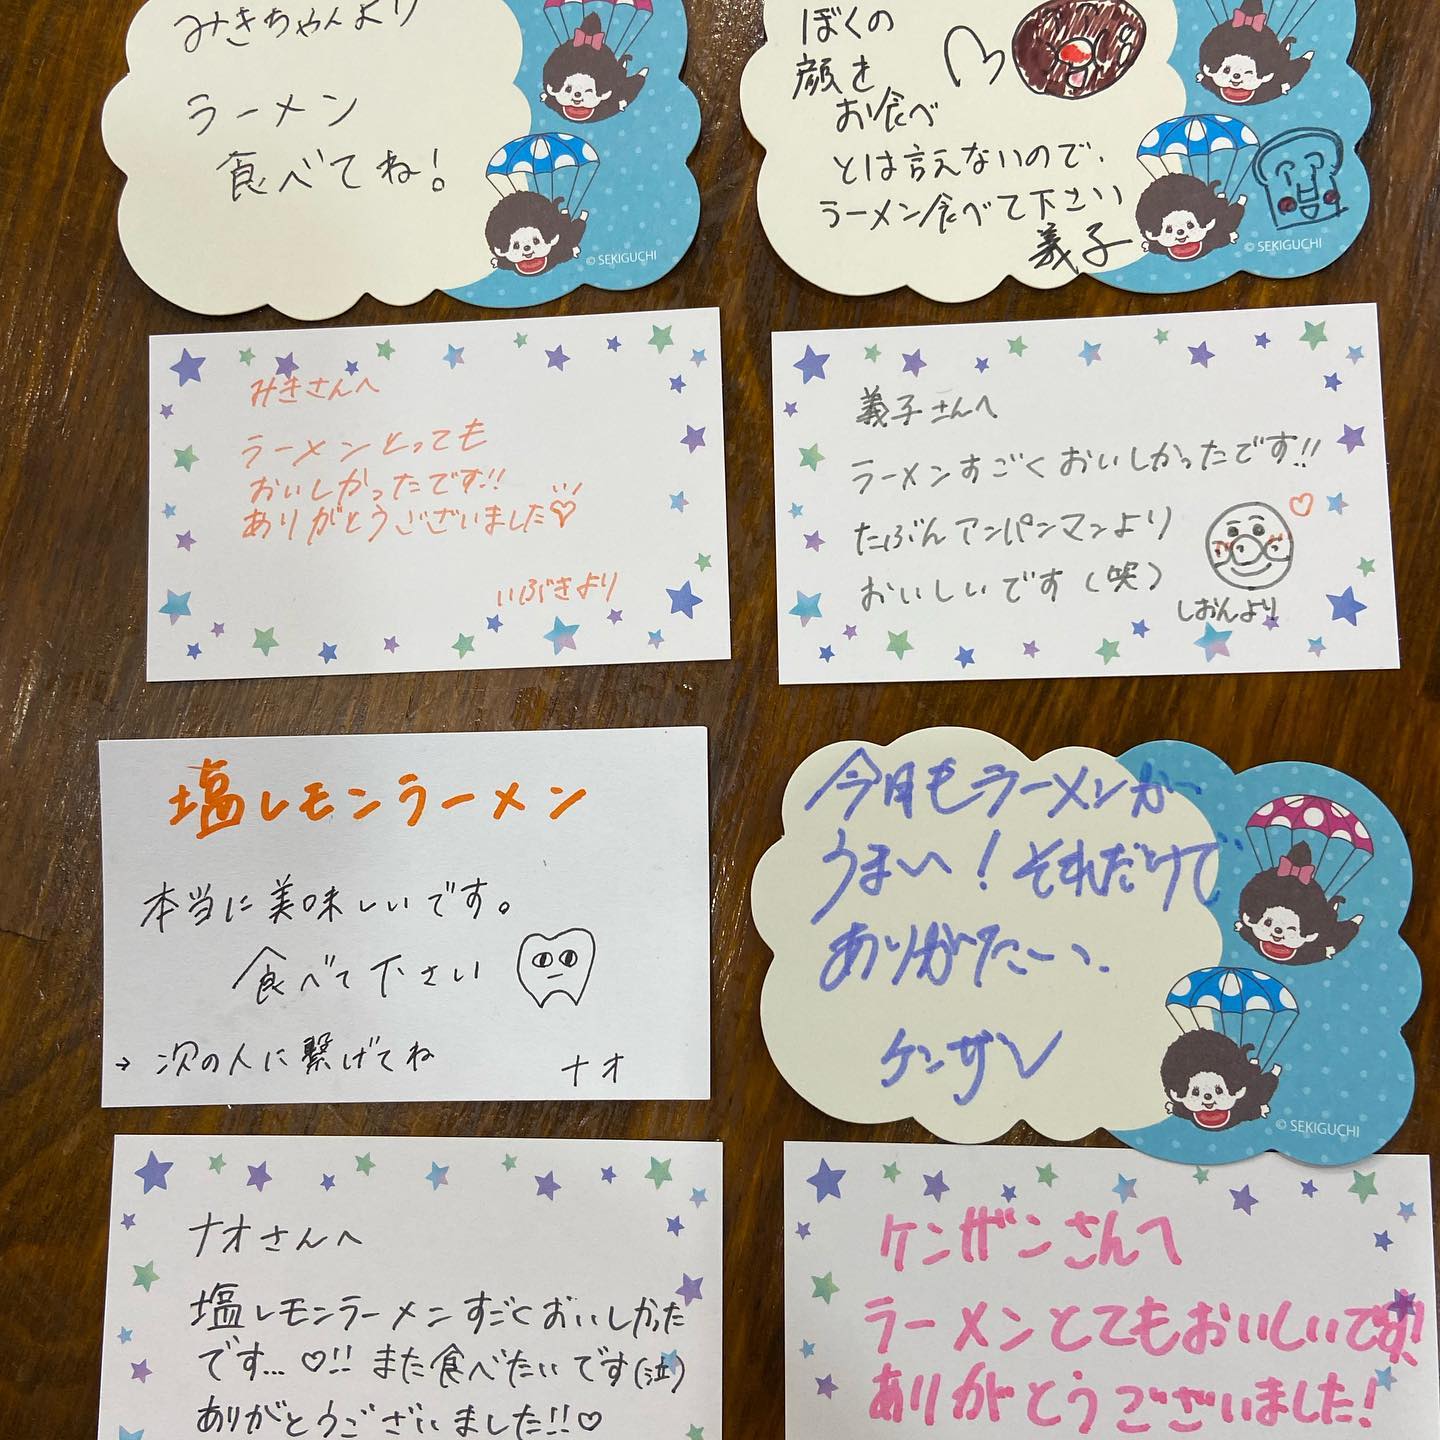 みきちゃんより
ラーメン
食べてね!
© SEKIGUCHI
ぼくの
顔を
お食べ
とは言えないので、
ラーメン食べて下さい
義子
© SEKIGUCHI
みきさんへ
ラーメンとっても
おいしかったです!!
ありがとうございました♡
いぶきより
義子さんへ
ラーメンすごくおいしかったです!!
たぶんアンパンマンより
おいしいです(笑)
しおんより
塩レモンラーメン
本当に美味しいです。
食べて下さい
→ 次の人に繋げてね
ナオ
今日もラーメンが
うまい!それだけで
ありがたーい、
ケンザン
© SEKIGUCHI
ナオさんへ
塩レモンラーメンすごくおいしかった
です...♡!! また食べたいです(泣)
ありがとうございました!!♡
ケンザンさんへ
ラーメンとてもおいしいです!
ありがとうございました!